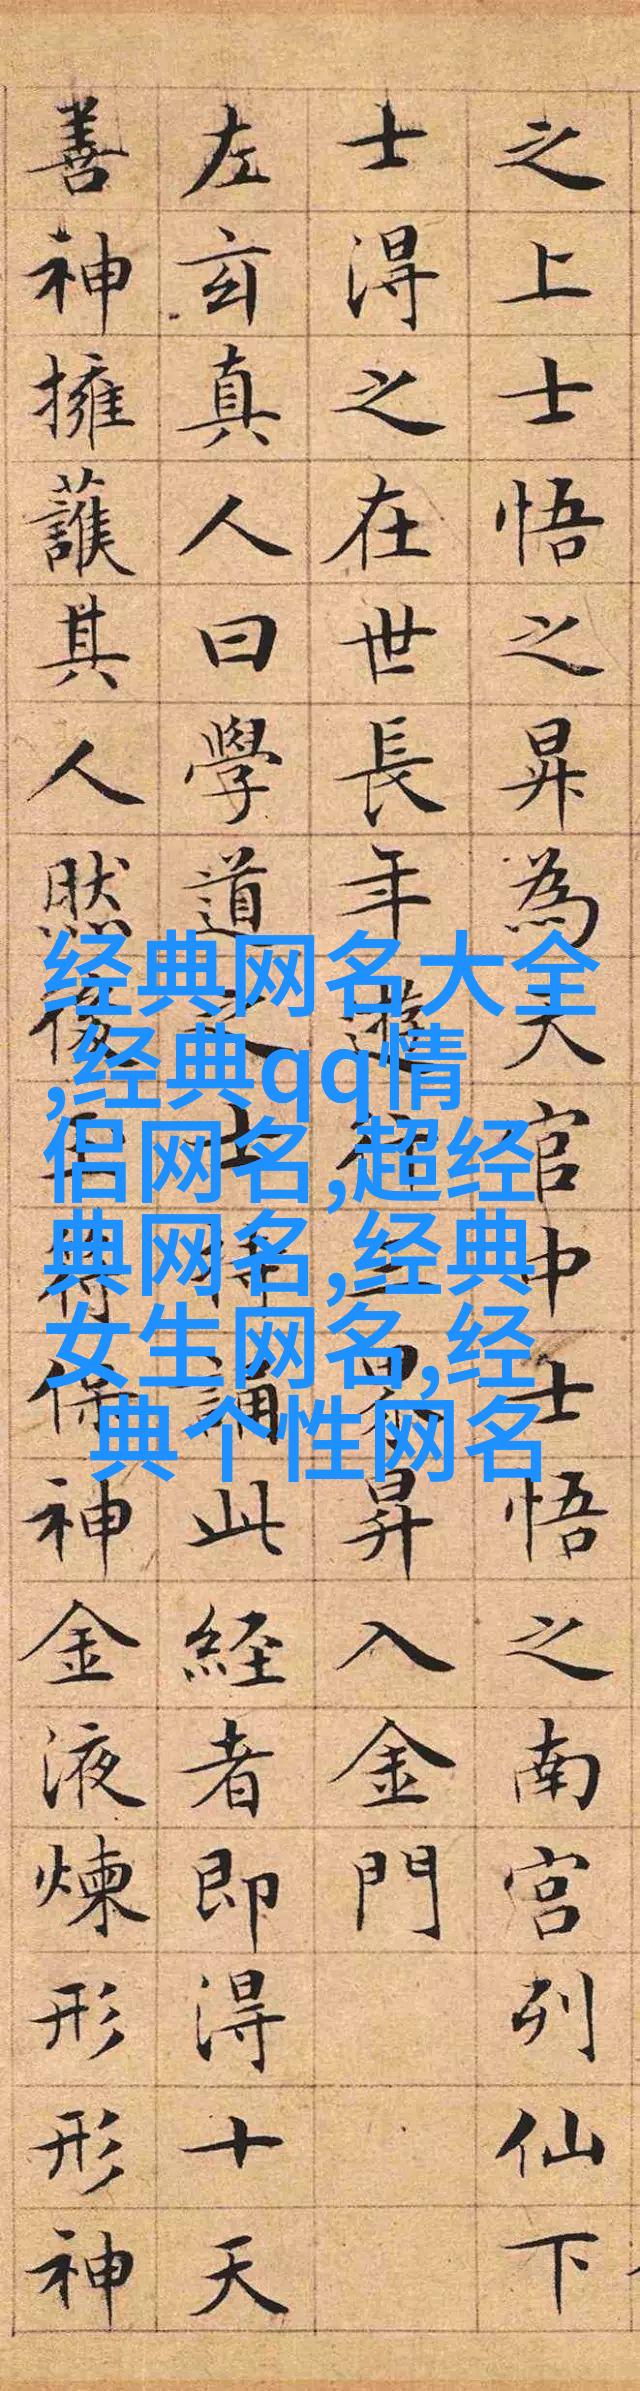 之上士悟之昇為天官中士悟之南宮列仙下
士淂之在世長年遊行三界昇入金門
左玄真人曰學道之士持誦此経者即淂十天
善神擁護其人然後玉符保神金液煉形形神
经典网名大全
,经典qq情
侣网名,超经
典网名,经典
女生网名,经
典个性网名